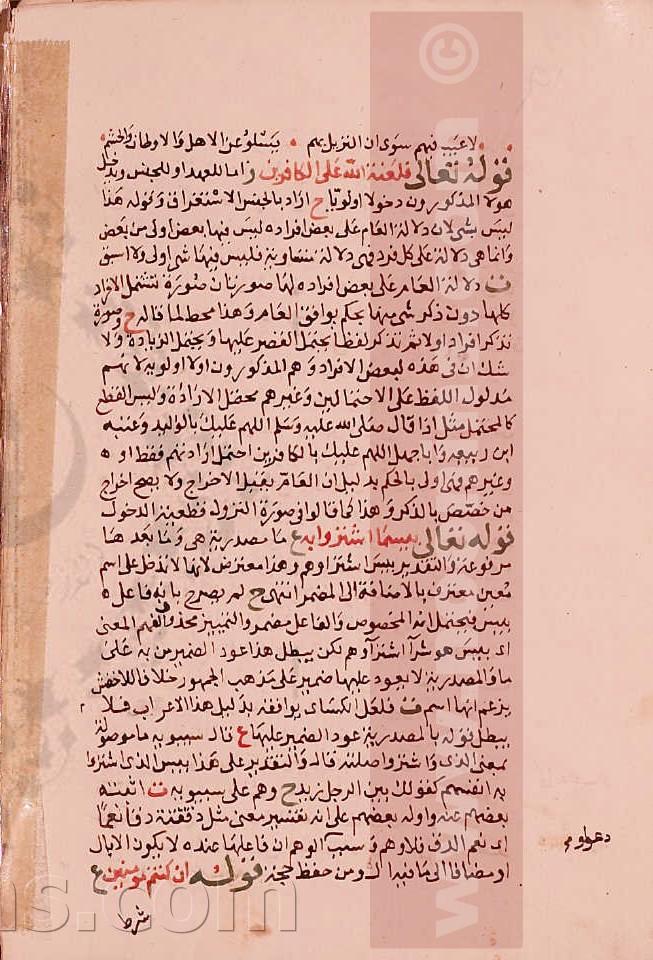 لا عيب فيهم سوى ان النزيل بهم • يسلو عن الاهل والاوطان والحشم
قوله تعالى فلعنة الله على الكافرين ز اما للعهد او للجنس ويدخل
هولا المذكورون دخولا اوليا ح اراد بالجنس الاستغراق وقوله هذا
ليس بشى لان دلالة العام على بعض افراده ليس فيها بعض اولى من بعض
وانما هى دلالة على كل فرد فهى دلالة متساوية فليس فيها شى اولى ولا اسبق
ت دلالة العام على بعض افراده لها صورتان صورة تشتمل الافراد
كلها دون ذكر شى منها بحكم يوافق العام وهذا محط لما قاله ح وصورة
تذكر افراد اولا ثم تذكر لفظا يحتمل القصر عليها ويحتمل الزيادة ولا
شك ان فى هذه لبعض الافراد وهم المذكورون اولا اولوية لا
مدلول اللفظ على الاحتمالين وغيرهم محتمل الارادة وليس القطع
كالمحتمل مثل اذا قال صلى الله عليه وسلم اللهم عليك بالوليد وعتبه
ابن ربيعه وابا جهل اللهم عليك بالكافرين احتمل ارادتهم فقط او
وغيرهم فهى اولى بالحكم بدليل ان العام يقبل الاخراج ولا يصح اخراج
من خصص بالذكر وهذا كما قالوا فى صورة النزول قطعية الدخول
قوله تعالى بيسما اشتروا به ع ما مصدرية هى وما بعد ها
مرفوعة والتقدير بيس اشتراوهم وهذا معترض لانها لا تدخل على اسم
معين معترف بالاضافة الى المضمر انتهى ح لم يصرح بانه فاعل
بييس فيحتمل انه المخصوص والفاعل مضمر والتمييز محذوف لفهم المعنى
اى بييس هو شرا اشتراوهم لكن يبطل هذا عود الضمير من به على
ما والمصدرية لا يعود عليها ضمير على مذهب الجمهور خلافا للاخفش
يزعم انها اسم ت فلعل الكساى يوافقه بدليل هذا الاعراب فلا
يبطل قوله بالمصدرية عود الضمير عليها ع قال سيبويه ما موصولة
بمعنى الذى واشتروا صلته قال والتقدير على هذا بيس الذى اشتروا
به انفسهم كقولك بيس الرجل زيد ح وهم على سيبويه ت اثبته
بعضهم عنه واوله بعضهم على انه تفسير معنى مثل دققته دقا نعما
اى نعم الدق فلا وهم و سيبويه ان فاعلها عنده لا يكون الا بال
او مضافا الى ما فيه ال ومن حفظ حجة قوله ان كنتم مومنين ع
شرط